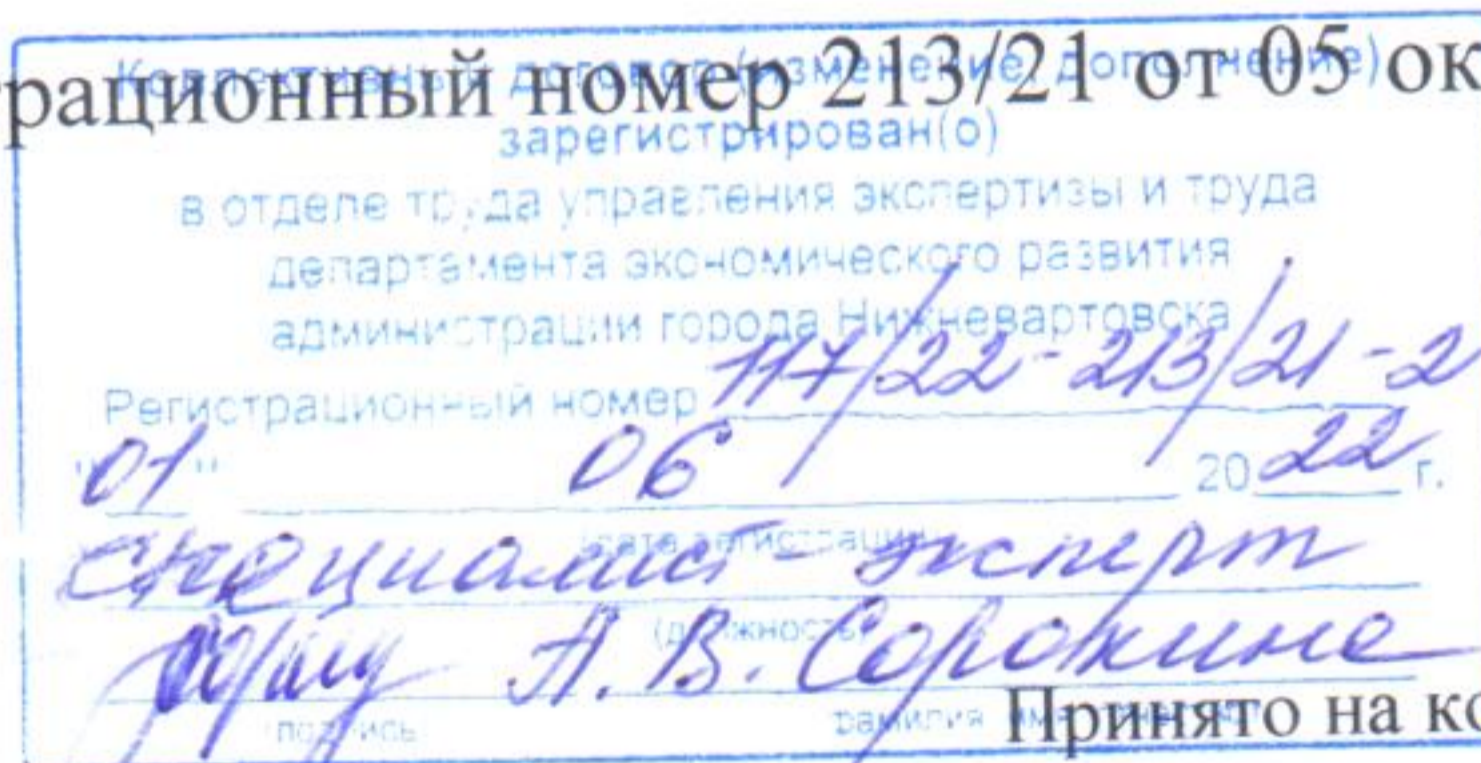 рационный номер 213/21 от 05 ок
Коллективный договор (изменение, дополнение)
зарегистрирован(о)
в отделе труда управления экспертизы и труда
департамента экономического развития
администрации города Нижневартовска
Регистрационный номер 117/22-213/21-2
"01" 06 2022 г.
(дата регистрации)
специалист-эксперт
(должность)
А.В. Сорокина
подпись фамилия имя
Принято на ко